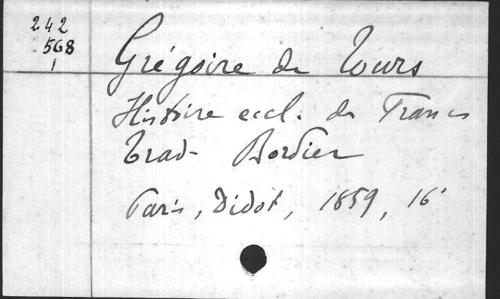 242
568
1
Grégoire de Tours
Histoire eccl. des Francs
trad. Bordier
Paris, Didot, 1859, 16°